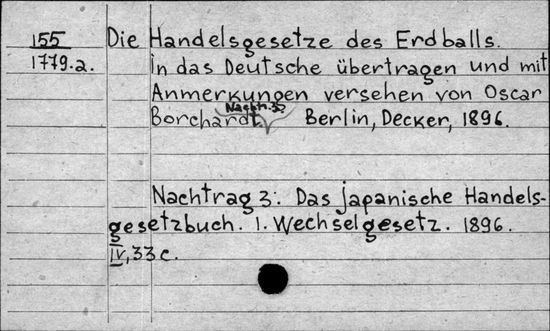 155 Die Handelsgesetze des Erdballs.
1779.a. In das Deutsche übertragen und mit
Anmerkungen versehen von Oscar
Nachtr. 3.
Borchardt. Berlin, Decker, 1896.
Nachtrag 3: Das japanische Handels-
gesetzbuch. 1. Wechselgesetz. 1896.
IV, 33 c.